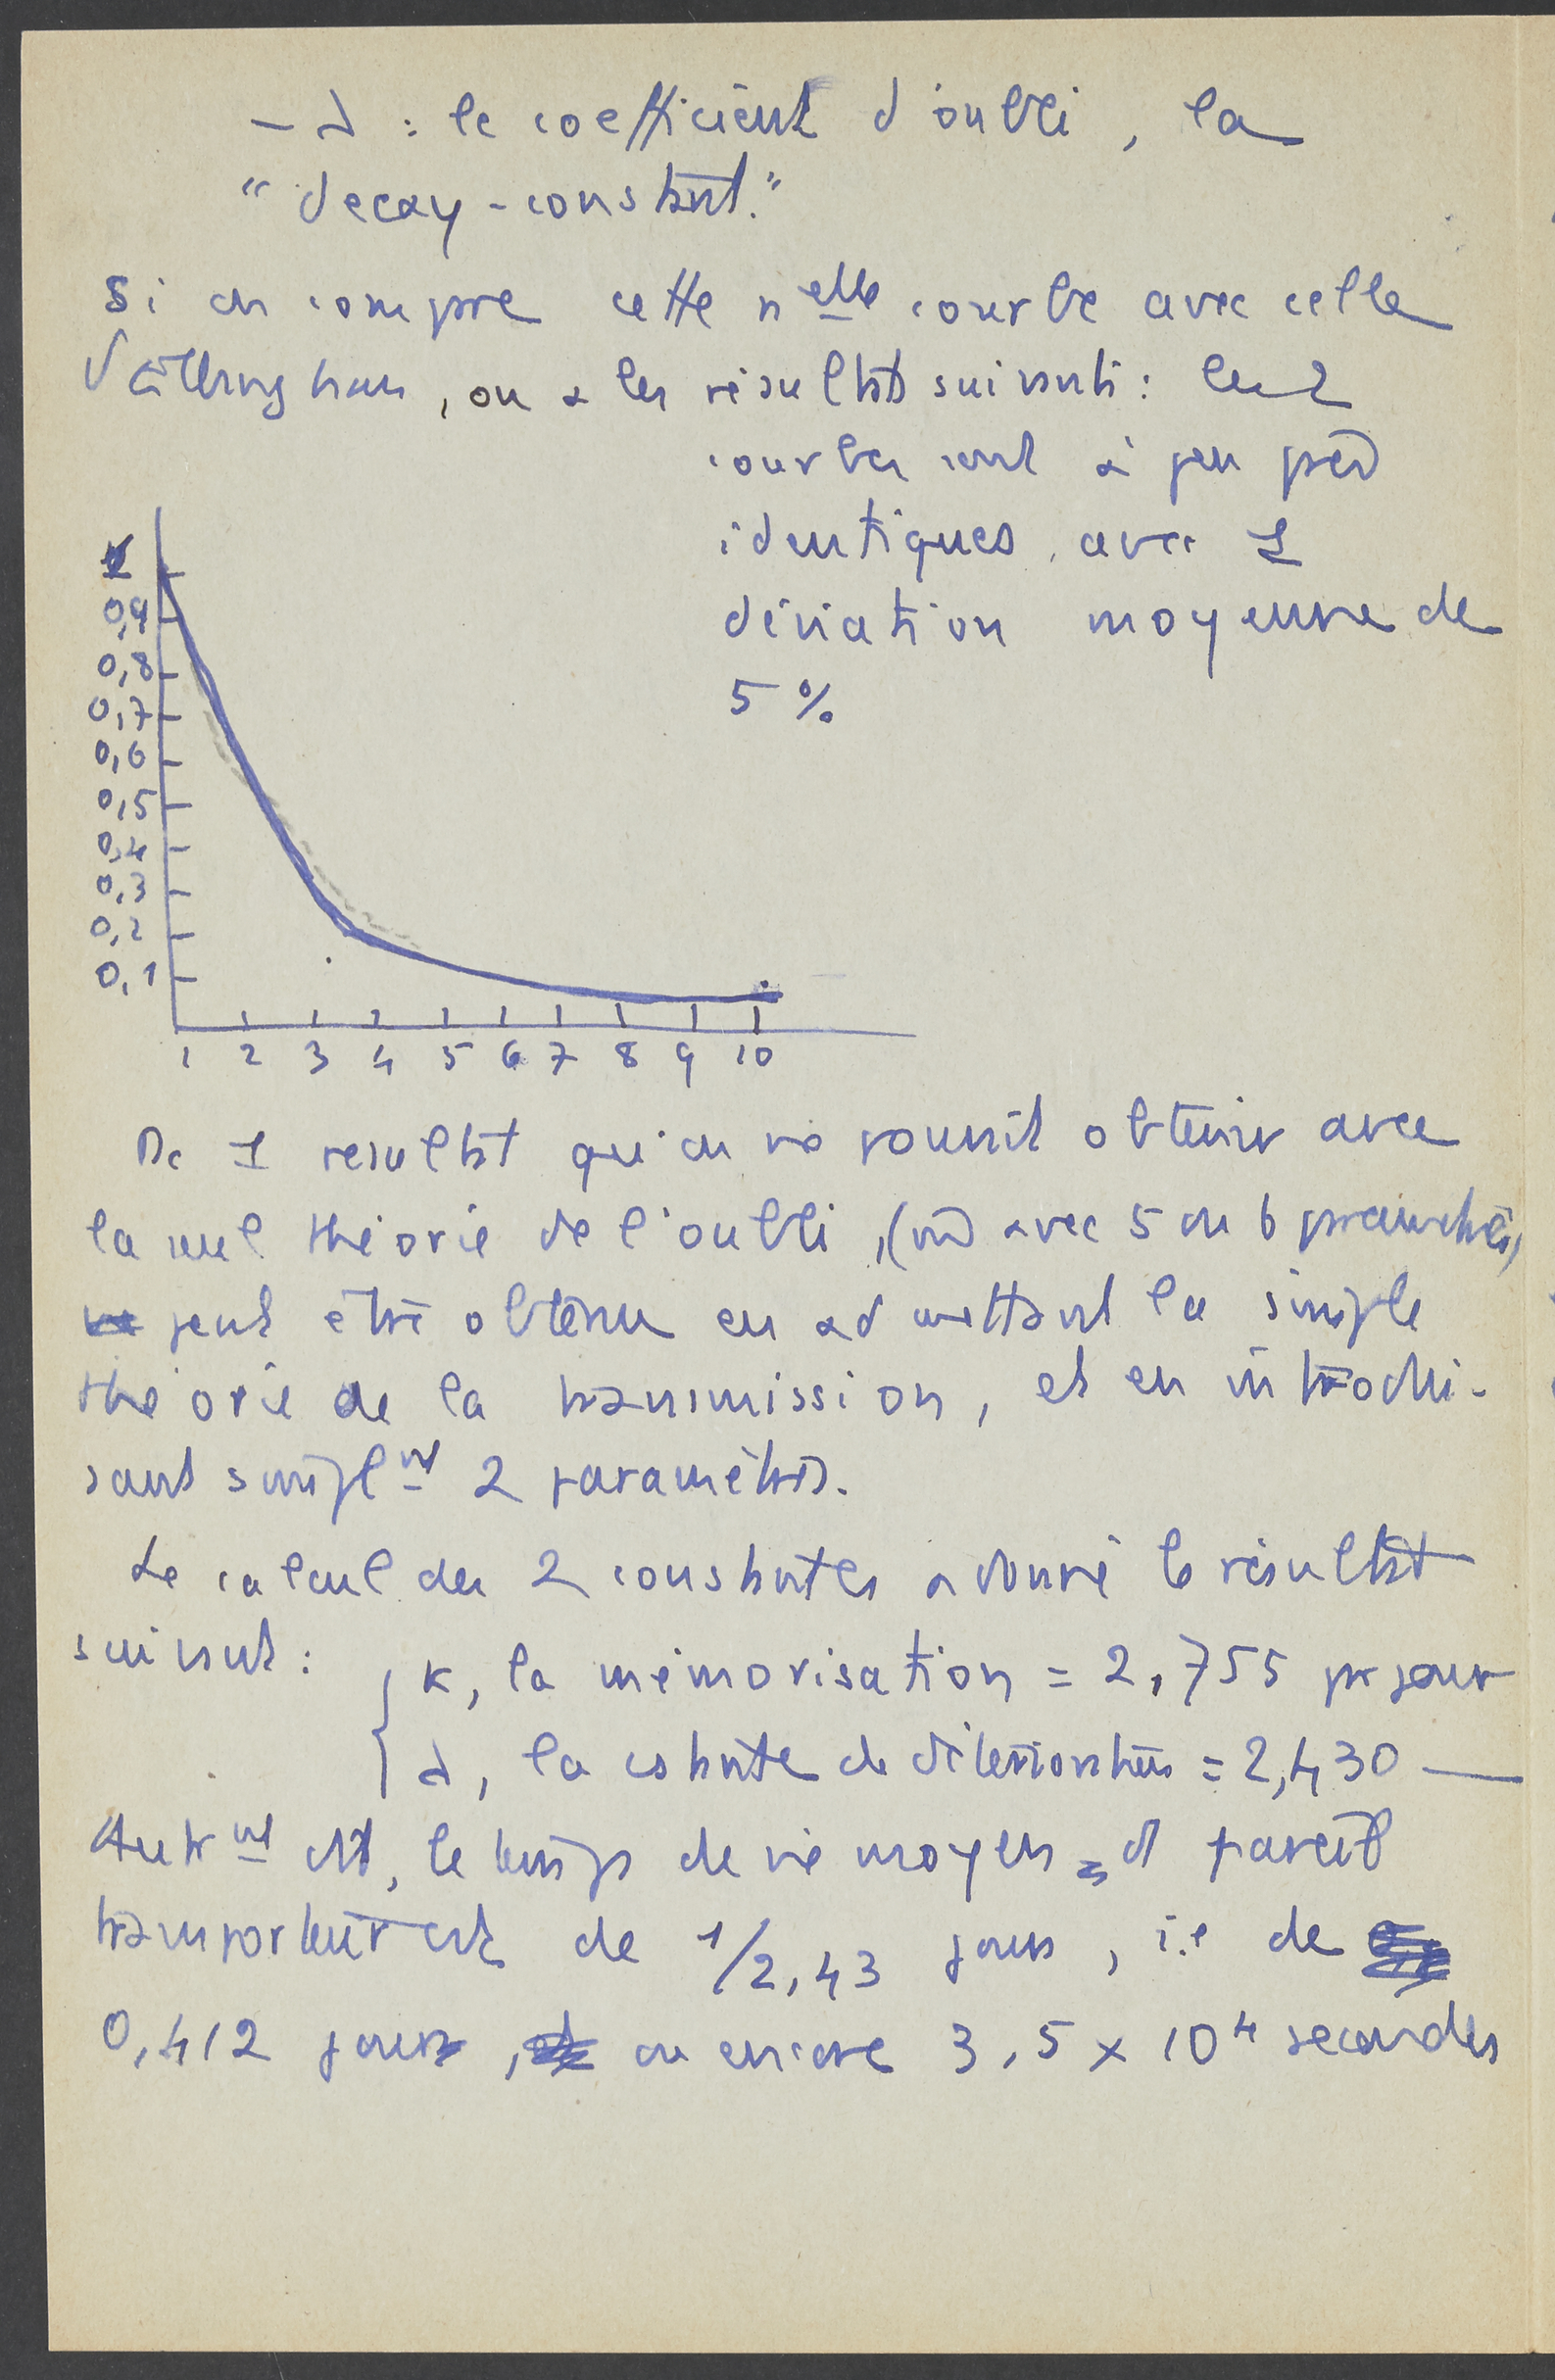 — λ : le coefficient d'oubli, la
"decay-constant."
Si on compare cette nelle courbe avec celle
d'Ebbinghaus, on a les résultats suivants : les 2
courbes sont à peu près
identiques, avec 1
déviation moyenne de
5 %
0,9
0,8
0,7
0,6
0,5
0,4
0,3
0,2
0,1
1 2 3 4 5 6 7 8 9 10
Dc 1 résultat qu'on ne pouvait obtenir avec
la théorie de l'oubli, (avec 5 ou 6 paramètres)
peut être obtenu en admettant la simple
théorie de la transmission, et en introdui-
sant simplmt 2 paramètres.
Le calcul des 2 constantes a donné le résultat
suivant : { κ, la mémorisation = 2,755 pr jour
λ, la cstante de détérioration = 2,430 —
Autrmt dit, le temps de vie moyen d'1 pareil
transporteur est de 1/2,43 jours, i.e de
0,412 jours, ou encore 3,5 x 10⁴ secondes